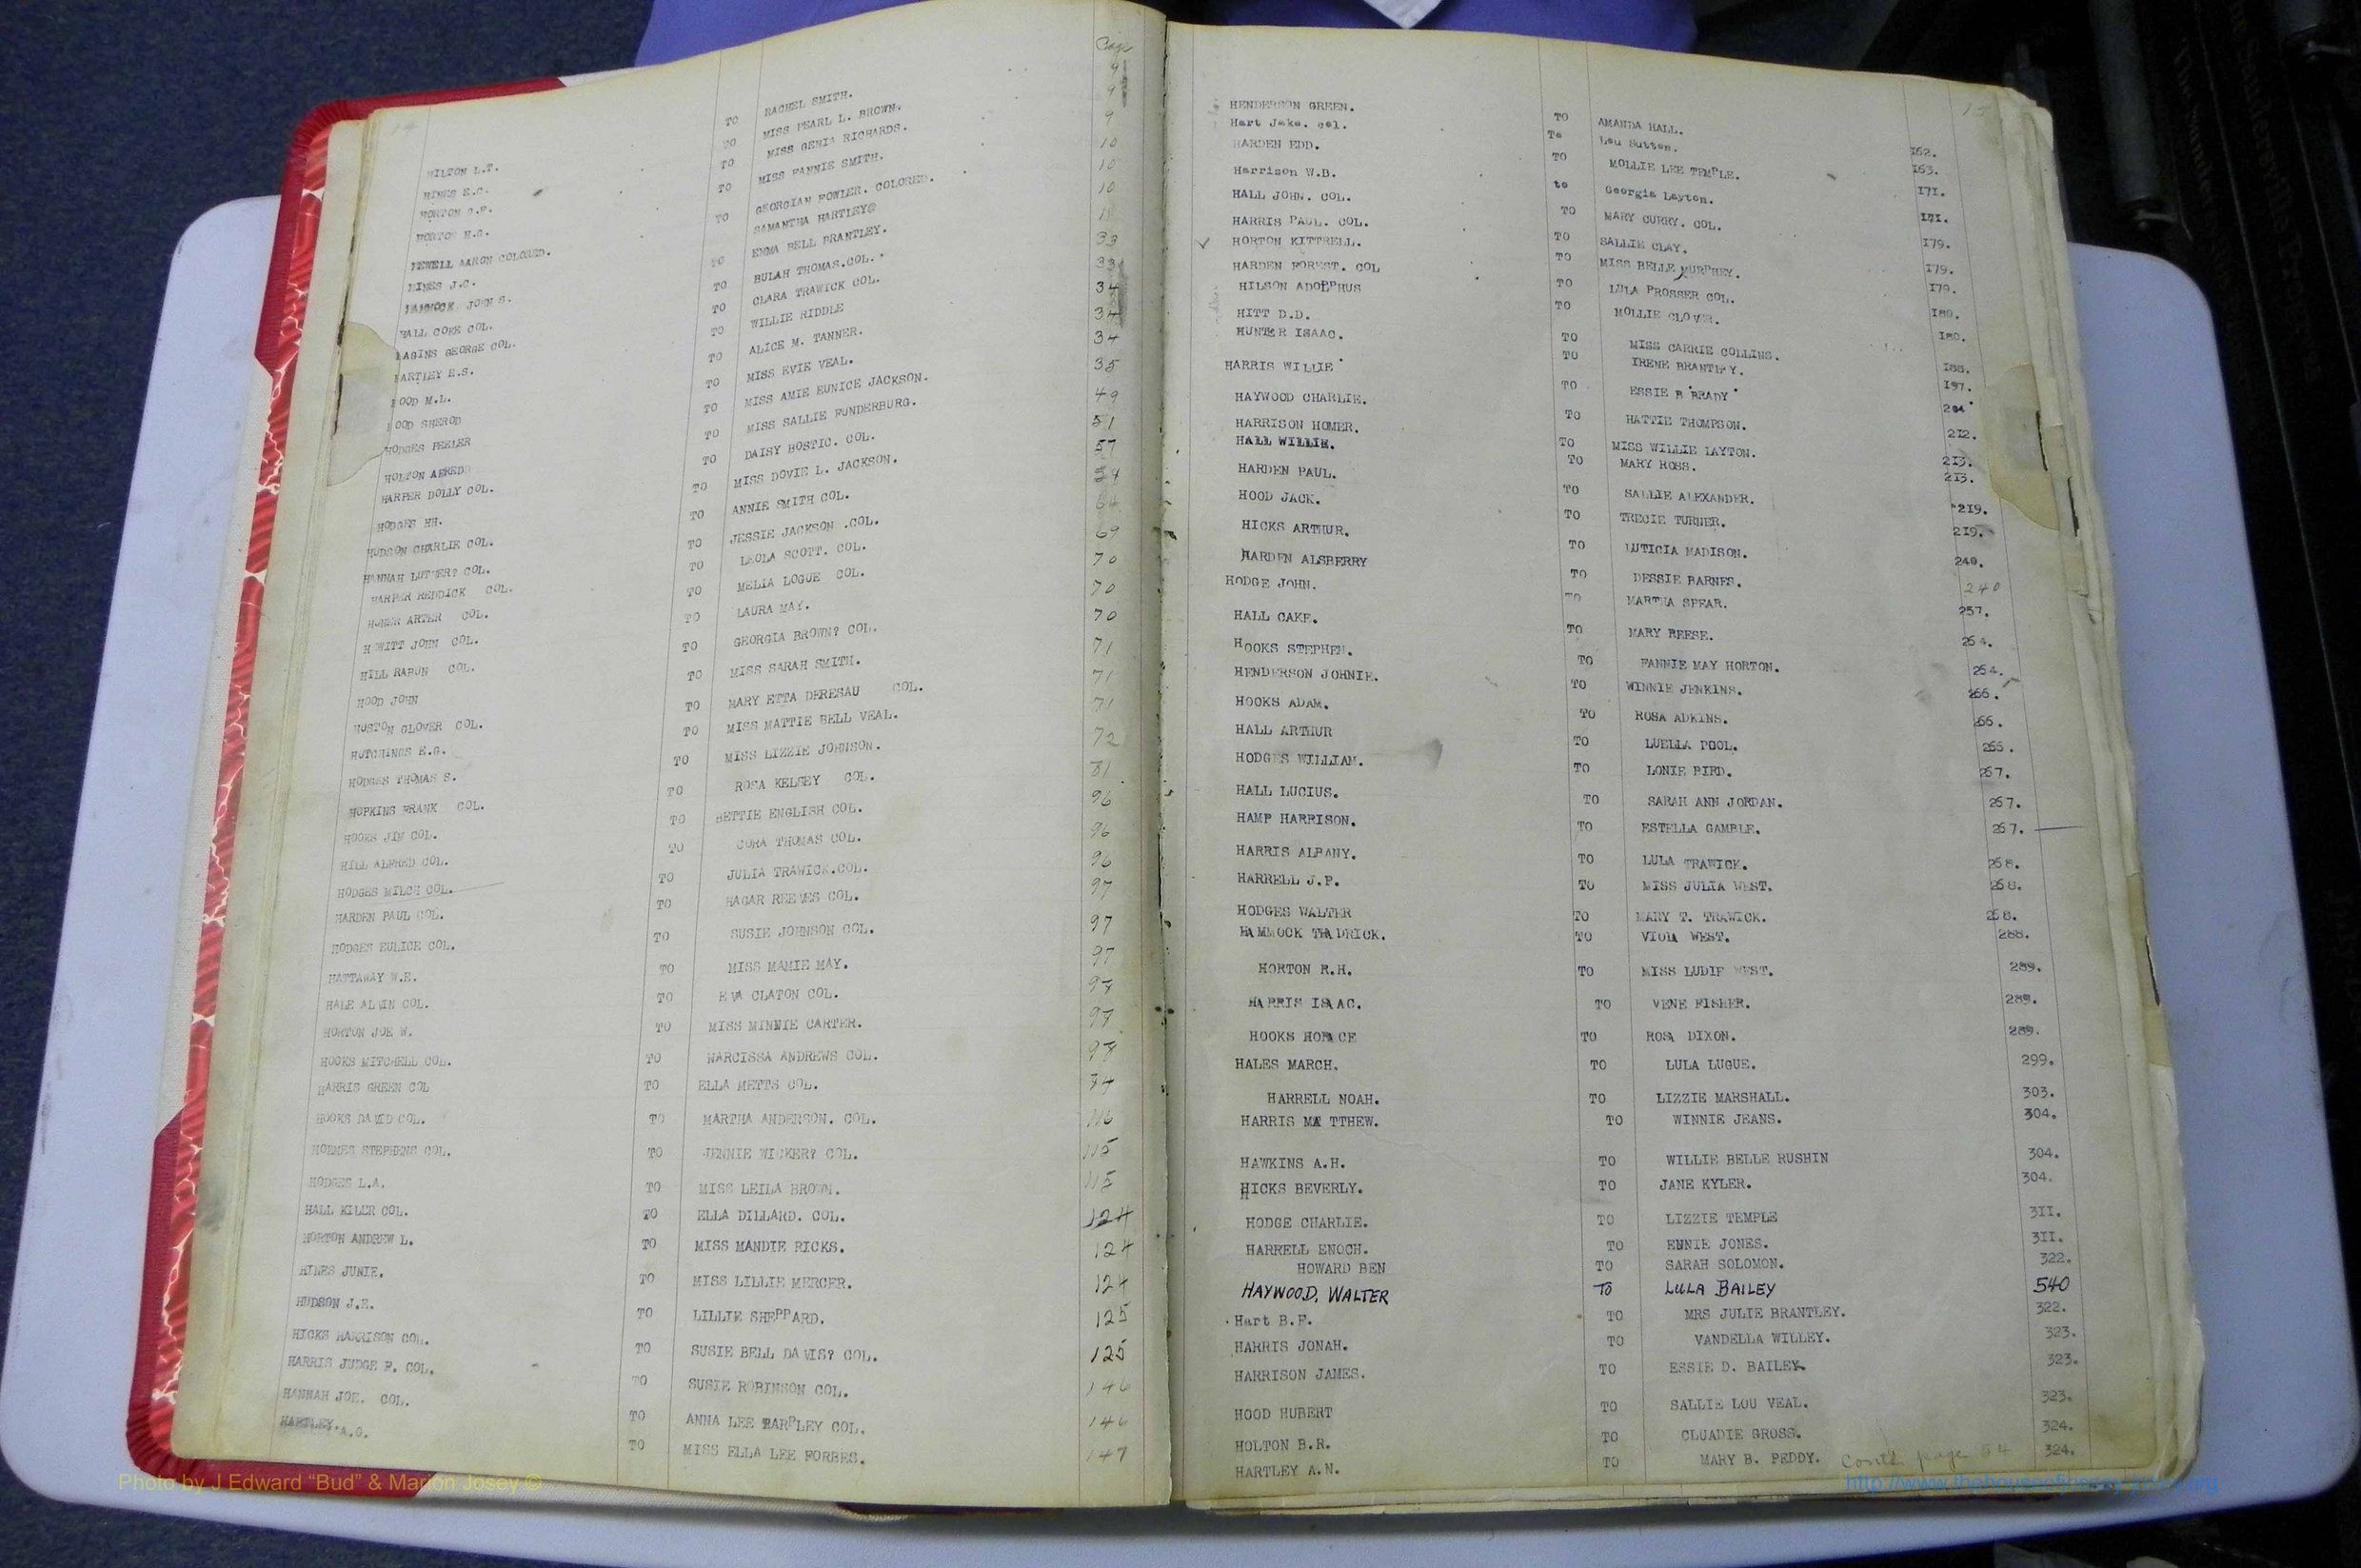 14
Page
HILTON L.T. TO RACHEL SMITH. 9
HINES E.C. TO MISS PEARL L. BROWN. 9
HORTON O.P. TO MISS GENIA RICHARDS. 9
HORTON H.G. TO MISS FANNIE SMITH. 10
HEWELL AARON COLORED. TO GEORGIAN FOWLER. COLORED. 10
HINES J.C. SAMANTHA HARTLEY@ 10
HAMMOCK JOHN S. TO EMMA BELL BRANTLEY.
HALL COKE COL. TO BULAH THOMAS.COL. 33
HAGINS GEORGE COL. TO CLARA TRAWICK COL. 33
HARTLEY E.S. TO WILLIE RIDDLE 34
HOOD M.L. TO ALICE M. TANNER. 34
HOOD SHEROD TO MISS EVIE VEAL. 34
HODGES PEELER TO MISS AMIE EUNICE JACKSON. 35
HOLTON ALFRED TO MISS SALLIE FUNDERBURG. 49
HARPER DOLLY COL. TO DAISY BOSTIC. COL. 51
HODGES HH. TO MISS DOVIE L. JACKSON. 57
HUDSON CHARLIE COL. TO ANNIE SMITH COL.
HANNAH LUTHER? COL. TO JESSIE JACKSON .COL. 64
HARPER REDDICK COL. TO LEOLA SCOTT. COL. 69
HOMER ARTER COL. TO MELIA LOGUE COL. 70
HEWITT JOHN COL. TO LAURA MAY. 70
HILL RABUN COL. TO GEORGIA BROWN? COL. 70
HOOD JOHN TO MISS SARAH SMITH. 71
HUSTON GLOVER COL. TO MARY ETTA DERESAU COL. 71
HUTCHINGS E.G. TO MISS MATTIE BELL VEAL. 71
HODGES THOMAS S. TO MISS LIZZIE JOHNSON. 72
HOPKINS FRANK COL. TO ROSA KELSEY COL. 81
HODGES JIM COL. TO BETTIE ENGLISH COL. 96
HILL ALFRED COL. TO CORA THOMAS COL. 96
HODGES MILCH COL. TO JULIA TRAWICK.COL. 96
HARDEN PAUL COL. TO HAGAR REEVES COL. 97
HODGES EULICE COL. TO SUSIE JOHNSON COL. 97
HATTAWAY W.E. TO MISS MAMIE MAY. 97
HALE ALVIN COL. TO EVA CLATON COL. 97
HORTON JOE W. TO MISS MINNIE CARTER. 97
HOOKS MITCHELL COL. TO NARCISSA ANDREWS COL. 97
HARRIS GREEN COL TO ELLA METTS COL.
HOOKS DAVID COL. TO MARTHA ANDERSON. COL. 116
HOLMES STEPHENS COL. TO JENNIE WICKER? COL. 115
HODGES L.A. TO MISS LEILA BROWN. 115
HALL KILER COL. TO ELLA DILLARD. COL. 124
HORTON ANDREW L. TO MISS MANDIE RICKS. 124
HINES JUNIE. TO MISS LILLIE MERCER. 124
HUDSON J.E. TO LILLIE SHEPPARD. 125
HICKS HARRISON COL. TO SUSIE BELL DAVIS? COL. 125
HARRIS JUDGE P. COL. TO SUSIE ROBINSON COL. 146
HANNAH JOE. COL. TO ANNA LEE TARPLEY COL. 146
HARTLEY. A.G. TO MISS ELLA LEE FORBES. 147
15
HENDERSON GREEN. TO AMANDA HALL. 162.
Hart Jake. col. To Lou Sutton. 163.
HARDEN EDD. TO MOLLIE LEE TEMPLE. 171.
Harrison W.B. to Georgia Layton. 171.
HALL JOHN. COL. TO MARY CURRY. COL. 179.
HARRIS PAUL. COL. TO SALLIE CLAY. 179.
HORTON KITTRELL. TO MISS BELLE MURPHEY. 179.
HARDEN FOREST. COL TO LULA PROSSER COL. 180.
HILSON ADOLPHUS TO MOLLIE CLOVER. 180.
HITT D.D. TO MISS CARRIE COLLINS. 188.
HUNTER ISAAC. TO IRENE BRANTLEY. 197.
HARRIS WILLIE TO ESSIE B BRADY 204
HAYWOOD CHARLIE. TO HATTIE THOMPSON. 212.
HARRISON HOMER. TO MISS WILLIE LAYTON. 213.
HALL WILLIE. TO MARY ROSS. 213.
HARDEN PAUL. TO SALLIE ALEXANDER. 219.
HOOD JACK. TO TRECIE TURNER. 219.
HICKS ARTHUR. TO LUTICIA MADISON. 240.
HARDEN ALSBERRY TO DESSIE BARNES. 240
HODGE JOHN. TO MARTHA SPEAR. 257.
HALL CAKE. TO MARY REESE. 264.
HOOKS STEPHEN. TO FANNIE MAY HORTON. 264.
HENDERSON JOHNIE. TO WINNIE JENKINS. 266.
HOOKS ADAM. TO ROSA ADKINS. 266.
HALL ARTHUR TO LUELLA POOL. 266.
HODGES WILLIAM. TO LONIE BIRD. 267.
HALL LUCIUS. TO SARAH ANN JORDAN. 267.
HAMP HARRISON. TO ESTELLA GAMBLE. 267.
HARRIS ALBANY. TO LULA TRAWICK. 268.
HARRELL J.P. TO MISS JULIA WEST. 268.
HODGES WALTER TO MARY T. TRAWICK. 268.
HAMMOCK THADRICK. TO VIOLA WEST. 288.
HORTON R.H. TO MISS LUDIE WEST. 289.
HARRIS ISAAC. TO VENE FISHER. 289.
HOOKS HORACE TO ROSA DIXON. 289.
HALES MARCH. TO LULA LUGUE. 299.
HARRELL NOAH. TO LIZZIE MARSHALL. 303.
HARRIS MATTHEW. TO WINNIE JEANS. 304.
HAWKINS A.H. TO WILLIE BELLE RUSHIN 304.
HICKS BEVERLY. TO JANE KYLER. 304.
HODGE CHARLIE. TO LIZZIE TEMPLE 311.
HARRELL ENOCH. TO ENNIE JONES. 311.
HOWARD BEN TO SARAH SOLOMON. 322.
HAYWOOD, WALTER TO LULA BAILEY 540
Hart B.F. TO MRS JULIE BRANTLEY. 322.
HARRIS JONAH. TO VANDELLA WILLEY. 323.
HARRISON JAMES. TO ESSIE D. BAILEY. 323.
HOOD HUBERT TO SALLIE LOU VEAL. 323.
HOLTON B.R. TO CLUADIE GROSS. 324.
HARTLEY A.N. TO MARY B. PEDDY. Cont'd page 54 324.
Photo by J Edward “Bud” & Marion Josey ©